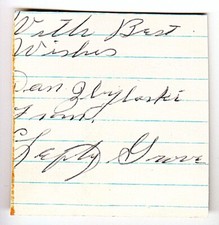 With Best
Wishes
Dan Zbyloski
From
Lefty Grove